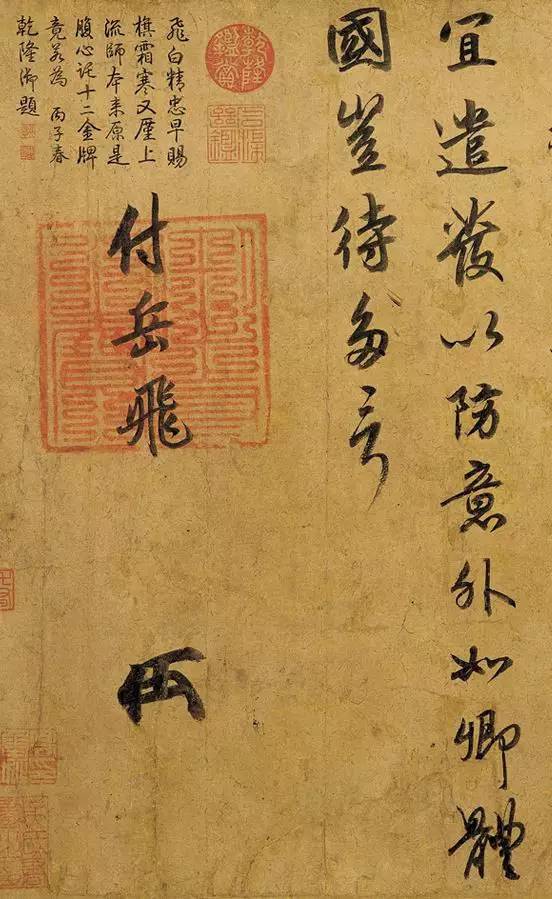 宜遣發以防意外如卿體
國豈待多言
付岳飛
乾隆鑑賞
飛白精忠早賜
旂霜寒又廑上
流師本来原是
腹心託十二金牌
竟若為 丙子春
乾隆御題